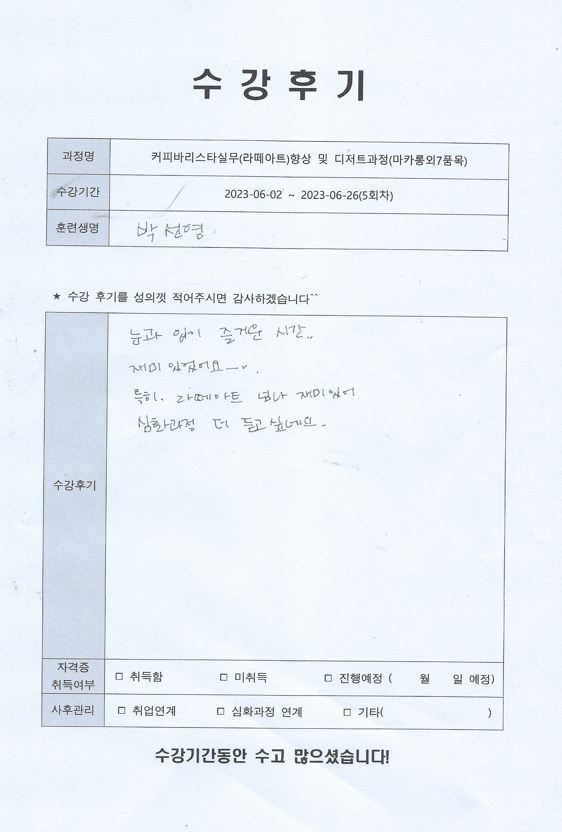 수강후기
과정명 커피바리스타실무(라떼아트)향상 및 디저트과정(마카롱외7품목)
수강기간 2023-06-02 ~ 2023-06-26(5회차)
훈련생명 박선영
★ 수강 후기를 성의껏 적어주시면 감사하겠습니다^^
눈과 입이 즐거운 시간..
재미있었어요~~.
특히. 라떼아트 넘나 재미있어
심화과정 더 듣고싶네요..
수강후기
자격증
취득여부 □ 취득함 □ 미취득 □ 진행예정 ( 월 일 예정)
사후관리 □ 취업연계 □ 심화과정 연계 □ 기타( )
수강기간동안 수고 많으셨습니다!